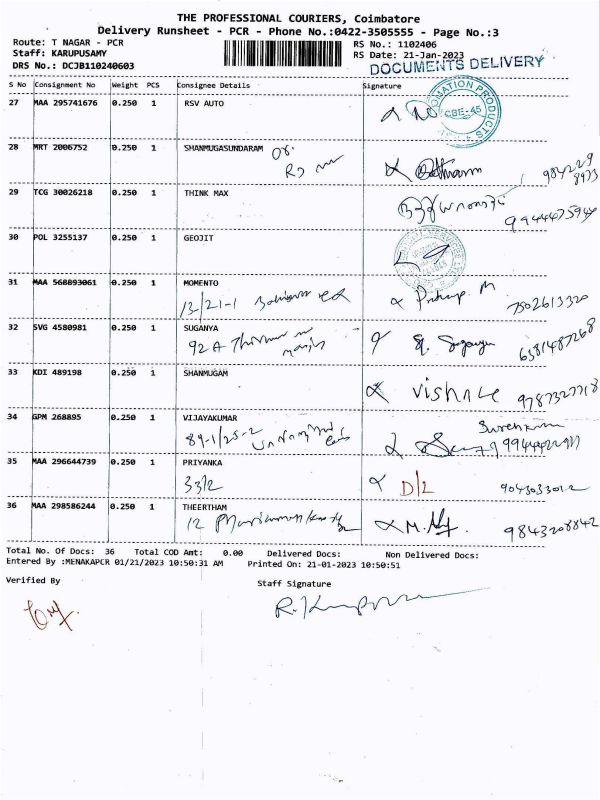 THE PROFESSIONAL COURIERS, Coimbatore
Delivery Runsheet - PCR - Phone No.:0422-3505555 - Page No.:3
Route: T NAGAR - PCR RS No.: 1102406
Staff: KARUPUSAMY RS Date: 21-Jan-2023
DRS No.: DCJB110240603 DOCUMENTS DELIVERY
S No Consignment No Weight PCS Consignee Details Signature
27 MAA 295741676 0.250 1 RSV AUTO
CBE-45
28 MRT 2006752 0.250 1 SHANMUGASUNDARAM
984229
8973
29 TCG 30026218 0.250 1 THINK MAX
9944475944
30 POL 3255137 0.250 1 GEOJIT
31 MAA 568893061 0.250 1 MOMENTO
13/21-1 7502613320
32 SVG 4580981 0.250 1 SUGANYA
92A 6381487268
33 KDI 489198 0.250 1 SHANMUGAM
Vishnu 9787327718
34 GPM 268895 0.250 1 VIJAYAKUMAR
89-1/25-2
35 MAA 296644739 0.250 1 PRIYANKA
33/2 D/2 9043033012
36 MAA 298586244 0.250 1 THEERTHAM
12 9843208842
Total No. Of Docs: 36 Total COD Amt: 0.00 Delivered Docs: Non Delivered Docs:
Entered By :MENAKAPCR 01/21/2023 10:50:31 AM Printed On: 21-01-2023 10:50:51
Verified By Staff Signature